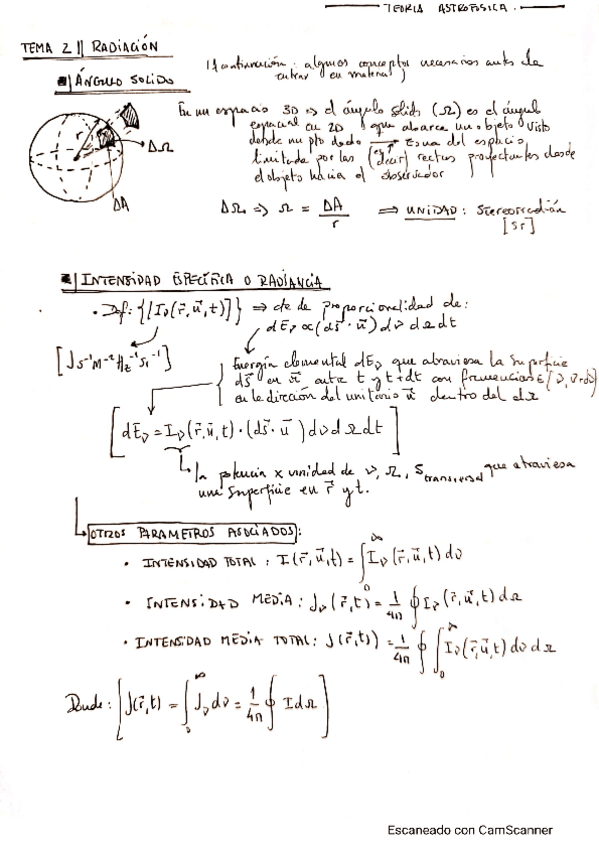 TEORIA ASTROFÍSICA.
TEMA 2 || RADIACIÓN
(A continuación: algunos conceptos necesarios antes de
entrar en materia)
ÁNGULO SOLIDO
En un espacio 3D es el ángulo solido (Ω) es el ángulo
espacial en 2D que abarca un objeto visto
desde un pto dado → Es una del espacio
limitada por las (es decir) rectas proyectantes desde
el objeto hacia el observador
r
ΔΩ
ΔA
ΔΩ => Ω = ΔA / r => UNIDAD: Stereorradián
[sr]
INTENSIDAD ESPECÍFICA O RADIANCIA
• Def: {|I_ν(r⃗,u⃗,t)|} => cte de proporcionalidad de:
dE_ν ∝ (ds⃗ · u⃗) dν dΩ dt
[J s⁻¹ m⁻² Hz⁻¹ sr⁻¹]
Energía elemental dE_ν que atraviesa la superficie
ds⃗ en r⃗ entre t y t+dt con frecuencias ∈ (ν, ν+dν)
en la dirección del unitario u⃗ dentro del dΩ
[dE_ν = I_ν(r⃗,u⃗,t) · (ds⃗ · u⃗) dν dΩ dt]
la potencia x unidad de ν, Ω, S transversal que atraviesa
una superficie en r⃗ y t.
OTROS PARAMETROS ASOCIADOS:
• INTENSIDAD TOTAL: I(r⃗,u⃗,t) = ∫₀^∞ I_ν(r⃗,u⃗,t) dν
• INTENSIDAD MEDIA: J_ν(r⃗,t) = 1/4π ∮ I_ν(r⃗,u⃗,t) dΩ
• INTENSIDAD MEDIA TOTAL: J(r⃗,t)) = 1/4π ∮ ∫₀^∞ I_ν(r⃗,u⃗,t) dν dΩ
Donde: [J(r⃗,t) = ∫₀^∞ J_ν dν = 1/4π ∮ I dΩ]
Escaneado con CamScanner